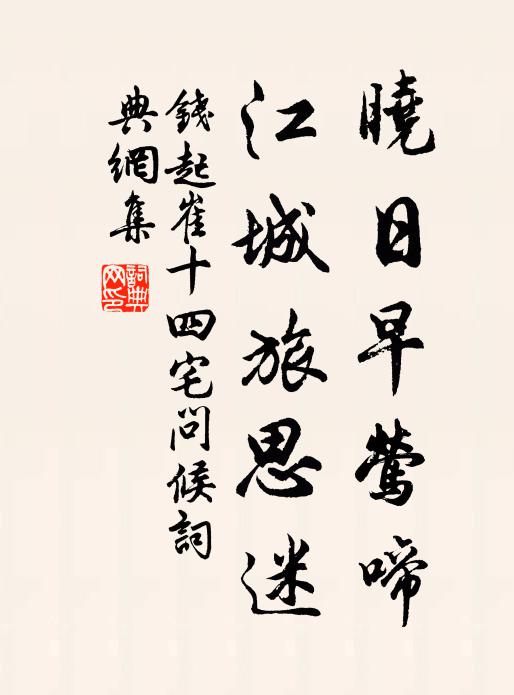 曉日早鶯啼
江城旅思迷
錢起崔十四宅問候詞
典網集
詞典网印